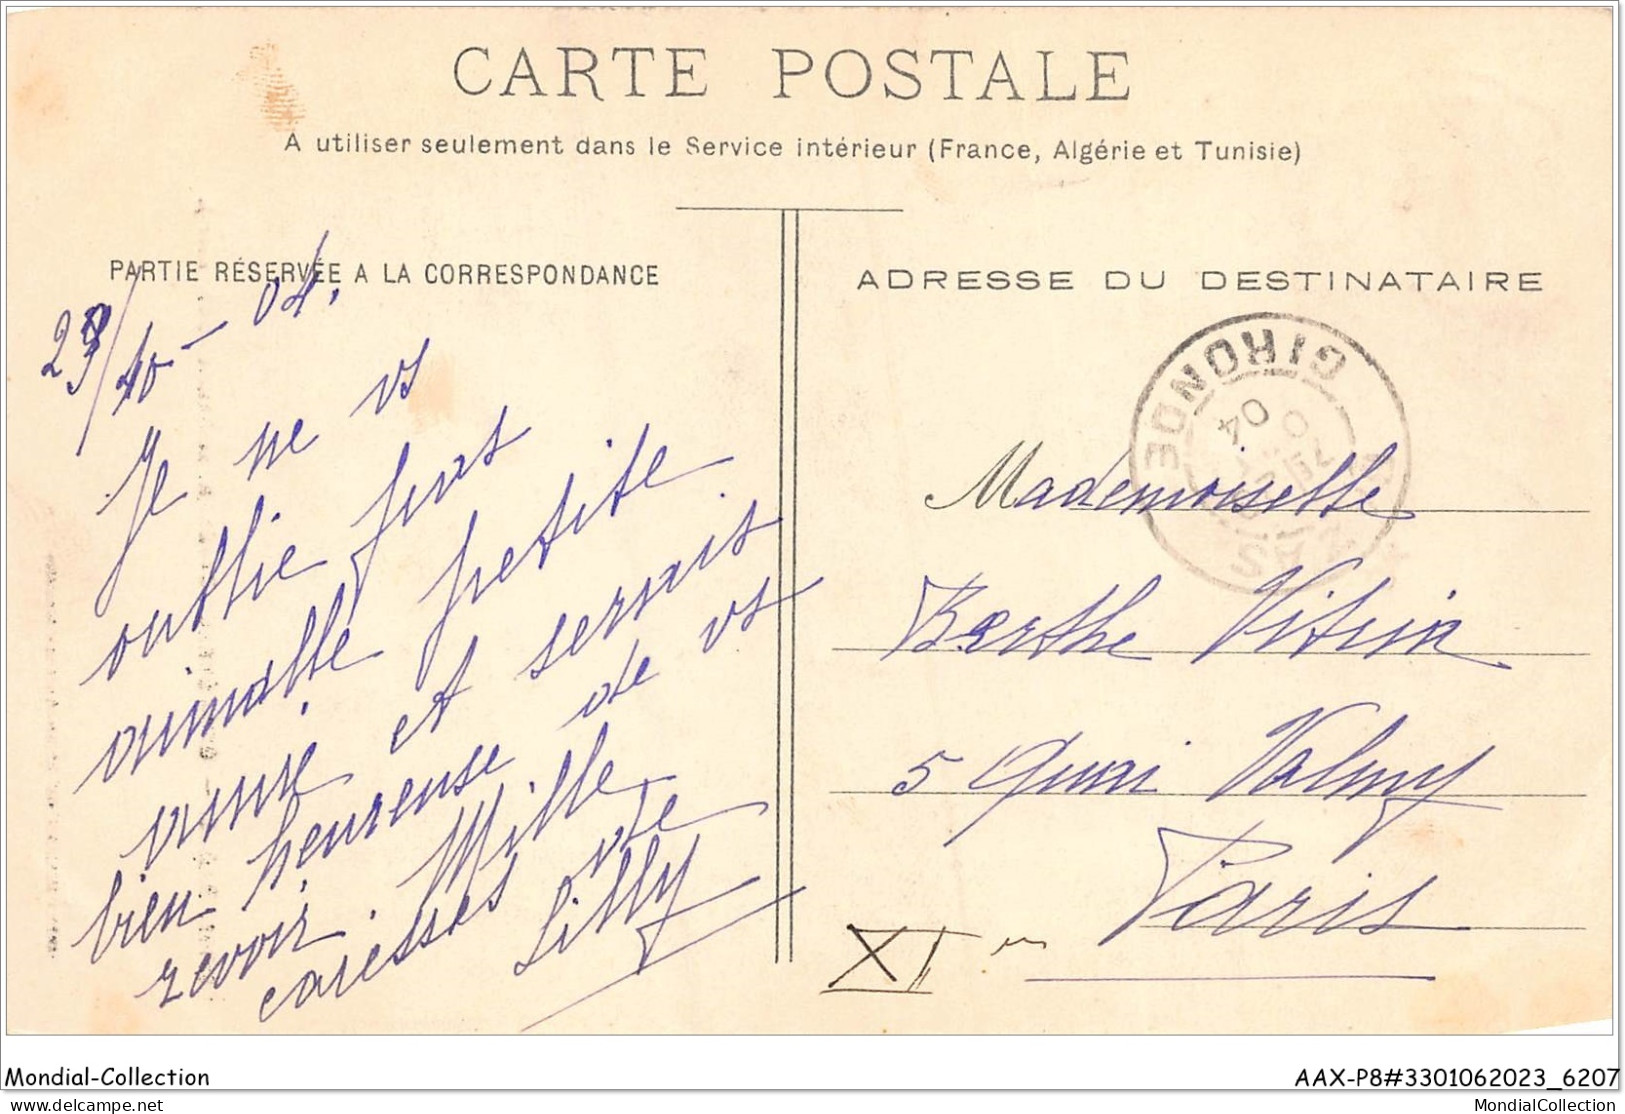 CARTE POSTALE
A utiliser seulement dans le Service intérieur (France, Algérie et Tunisie)
PARTIE RÉSERVÉE A LA CORRESPONDANCE
ADRESSE DU DESTINATAIRE
29/10 - 04.
Je ne vs
oublie pas
aimable petite
amie et serais
bien heureuse de vs
revoir. Mille
caresses vte
Lilly
GIRONDE
04
Mademoiselle
Berthe Vitrin
5 Quai Valmy
Paris
XI
Mondial-Collection
AAX-P8#3301062023_6207
delcampe.net
MondialCollection